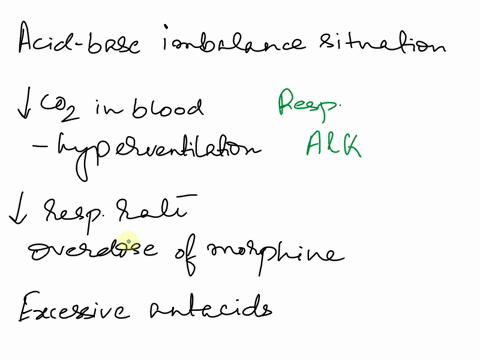 Acid-base imbalance situation
↓ CO2 in blood Resp.
- hyperventilation Alk
↓ resp. rate
overdose of morphine
Excessive antacids